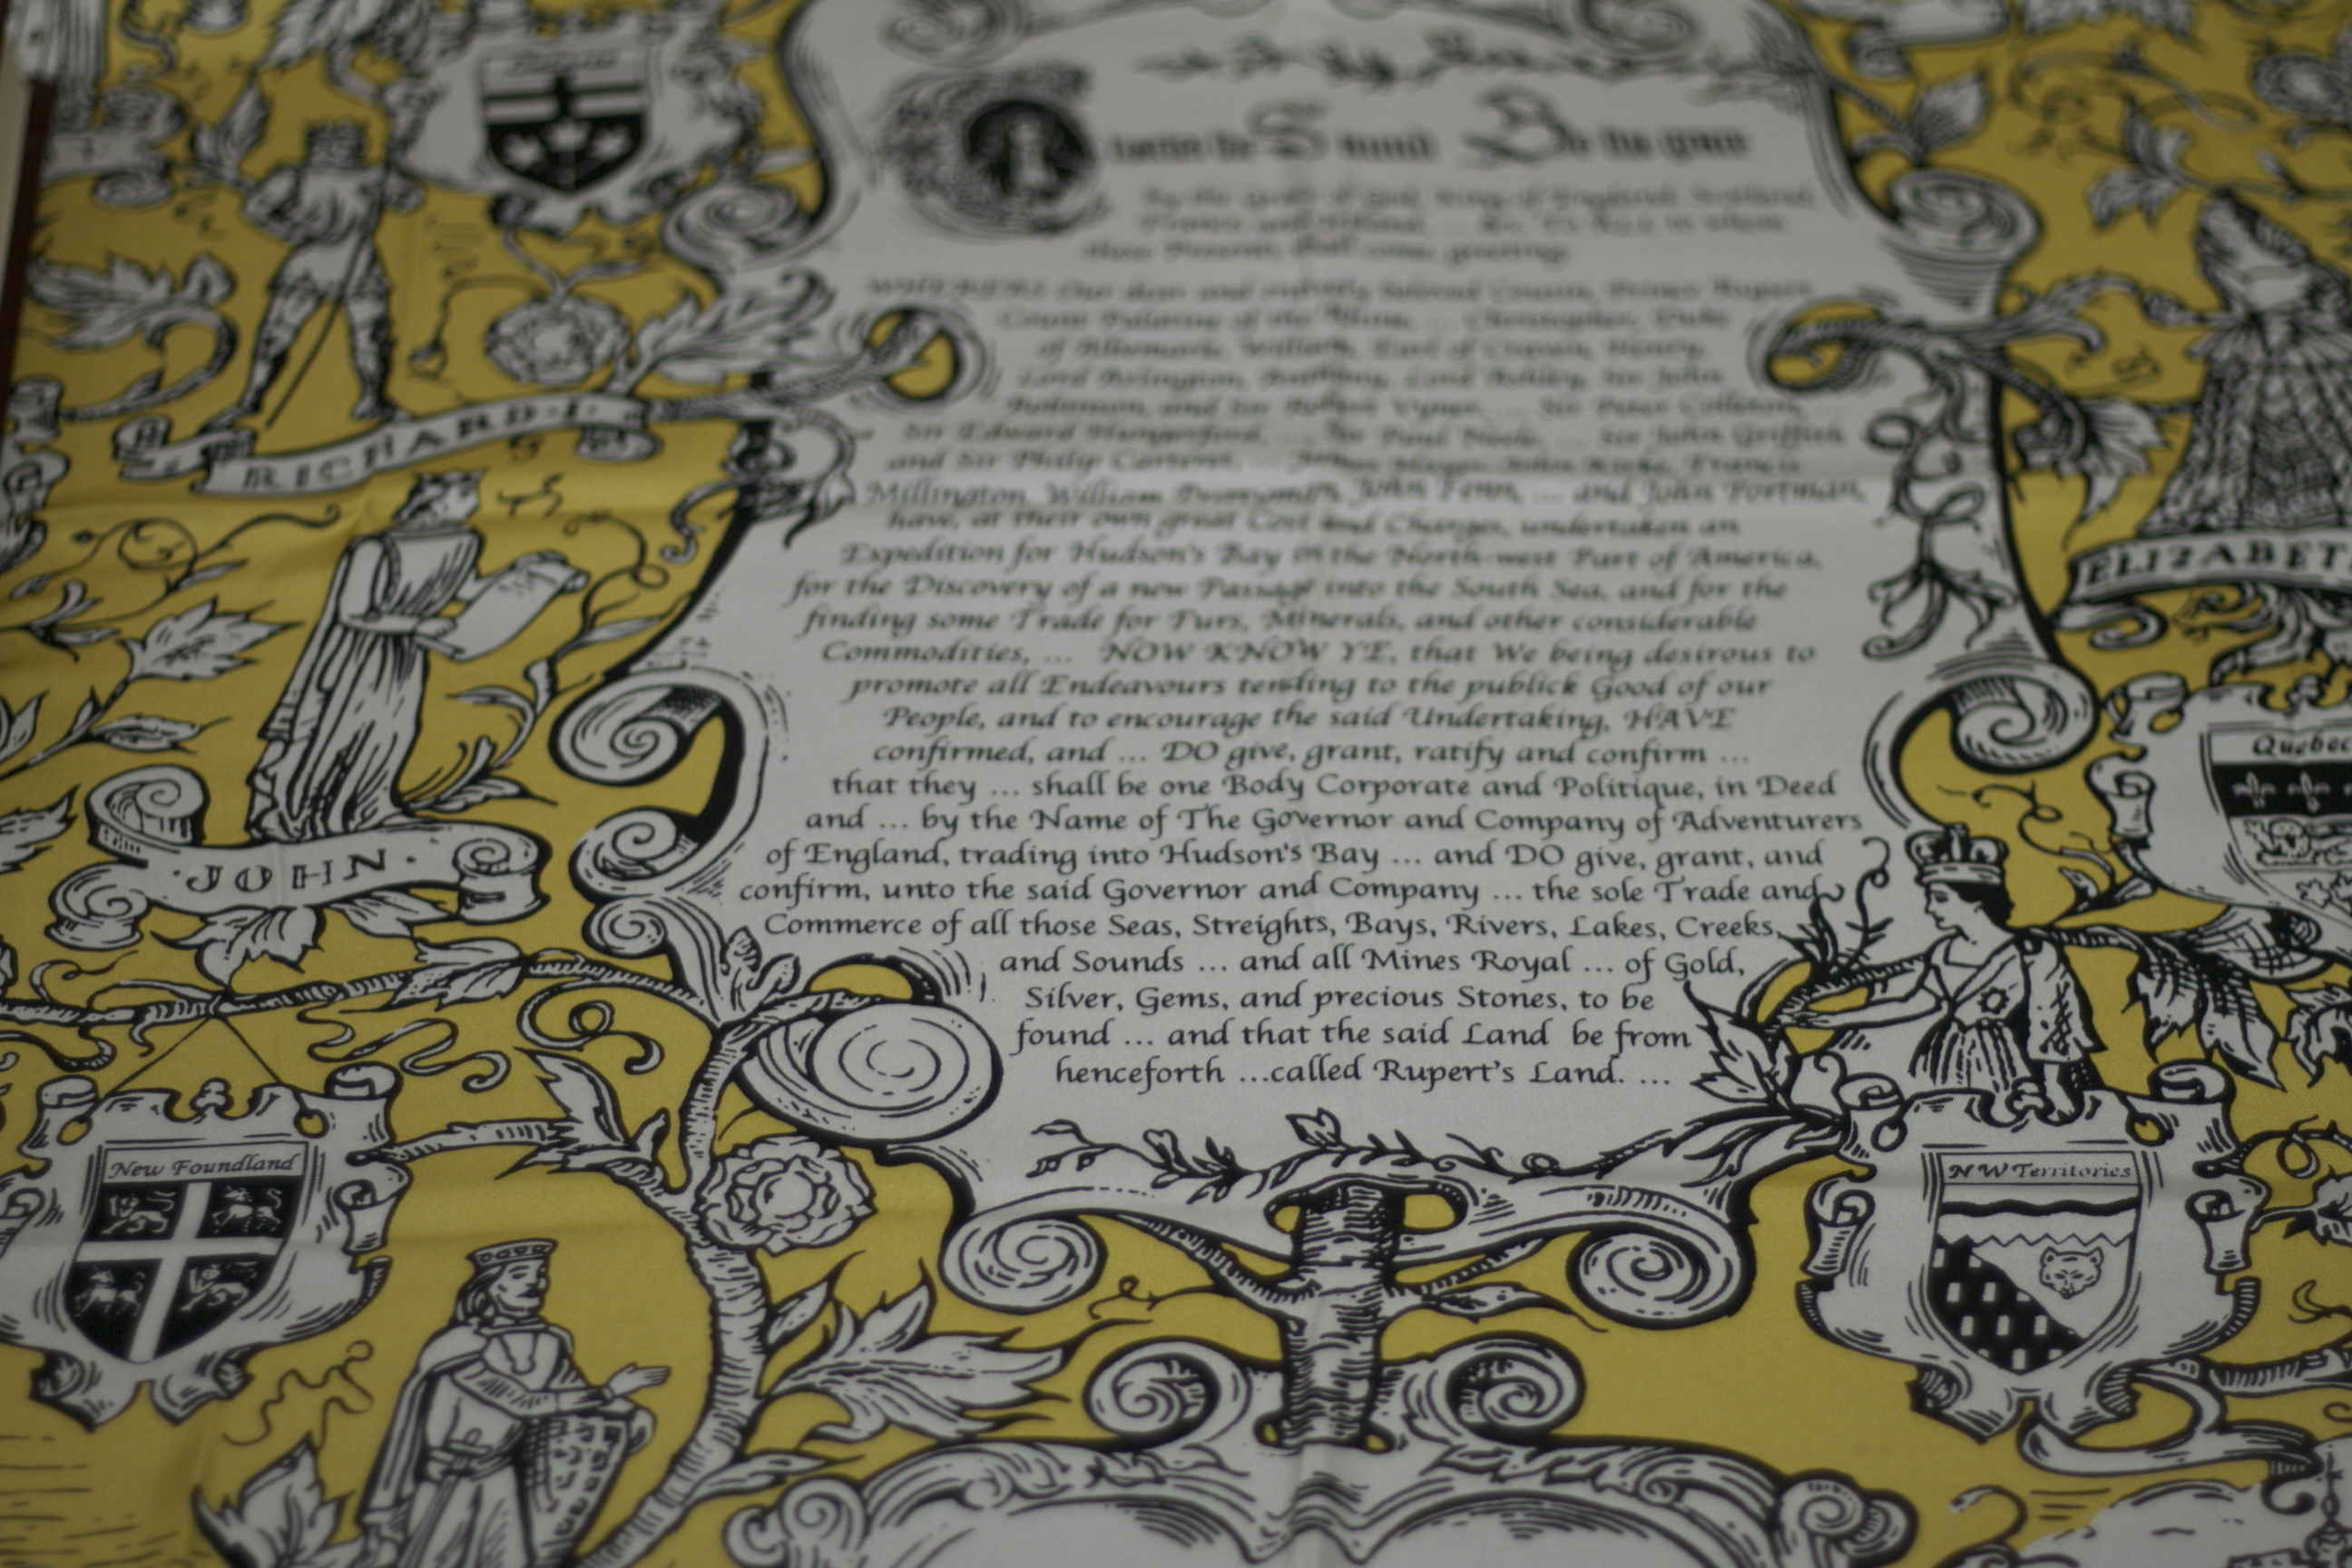 Charles the Second By the grace
By the Grace of God, King of England, Scotland,
France, and Ireland, ... &c. To ALL to whom
these Presents shall come, greeting:
WHEREAS Our dear and entirely beloved Cousin, Prince Rupert,
Count Palatine of the Rhine, ... Christopher, Duke
of Albemarle, William, Earl of Craven, Henry,
Lord Arlington, Anthony, Lord Ashley, Sir John
Robinson, and Sir Robert Vyner, ... Sir Peter Colleton, ...
Sir Edward Hungerford, ... Sir Paul Neele, ... Sir John Griffith
and Sir Philip Carteret, ... James Hayes, John Kirke, Francis
Millington, William Prettyman, John Fenn, ... and John Portman,
have, at their own great Cost and Charges, undertaken an
Expedition for Hudson's Bay in the North-west Part of America,
for the Discovery of a new Passage into the South Sea, and for the
finding some Trade for Furs, Minerals, and other considerable
Commodities, ... NOW KNOW YE, that We being desirous to
promote all Endeavours tending to the publick Good of our
People, and to encourage the said Undertaking, HAVE
confirmed, and ... DO give, grant, ratify and confirm ...
that they ... shall be one Body Corporate and Politique, in Deed
and ... by the Name of The Governor and Company of Adventurers
of England, trading into Hudson's Bay ... and DO give, grant, and
confirm, unto the said Governor and Company ... the sole Trade and
Commerce of all those Seas, Streights, Bays, Rivers, Lakes, Creeks,
and Sounds ... and all Mines Royal ... of Gold,
Silver, Gems, and precious Stones, to be
found ... and that the said Land be from
henceforth ...called Rupert's Land. ...
RICHARD·I·
·JOHN·
ELIZABET
Quebec
New Foundland
NW Territories